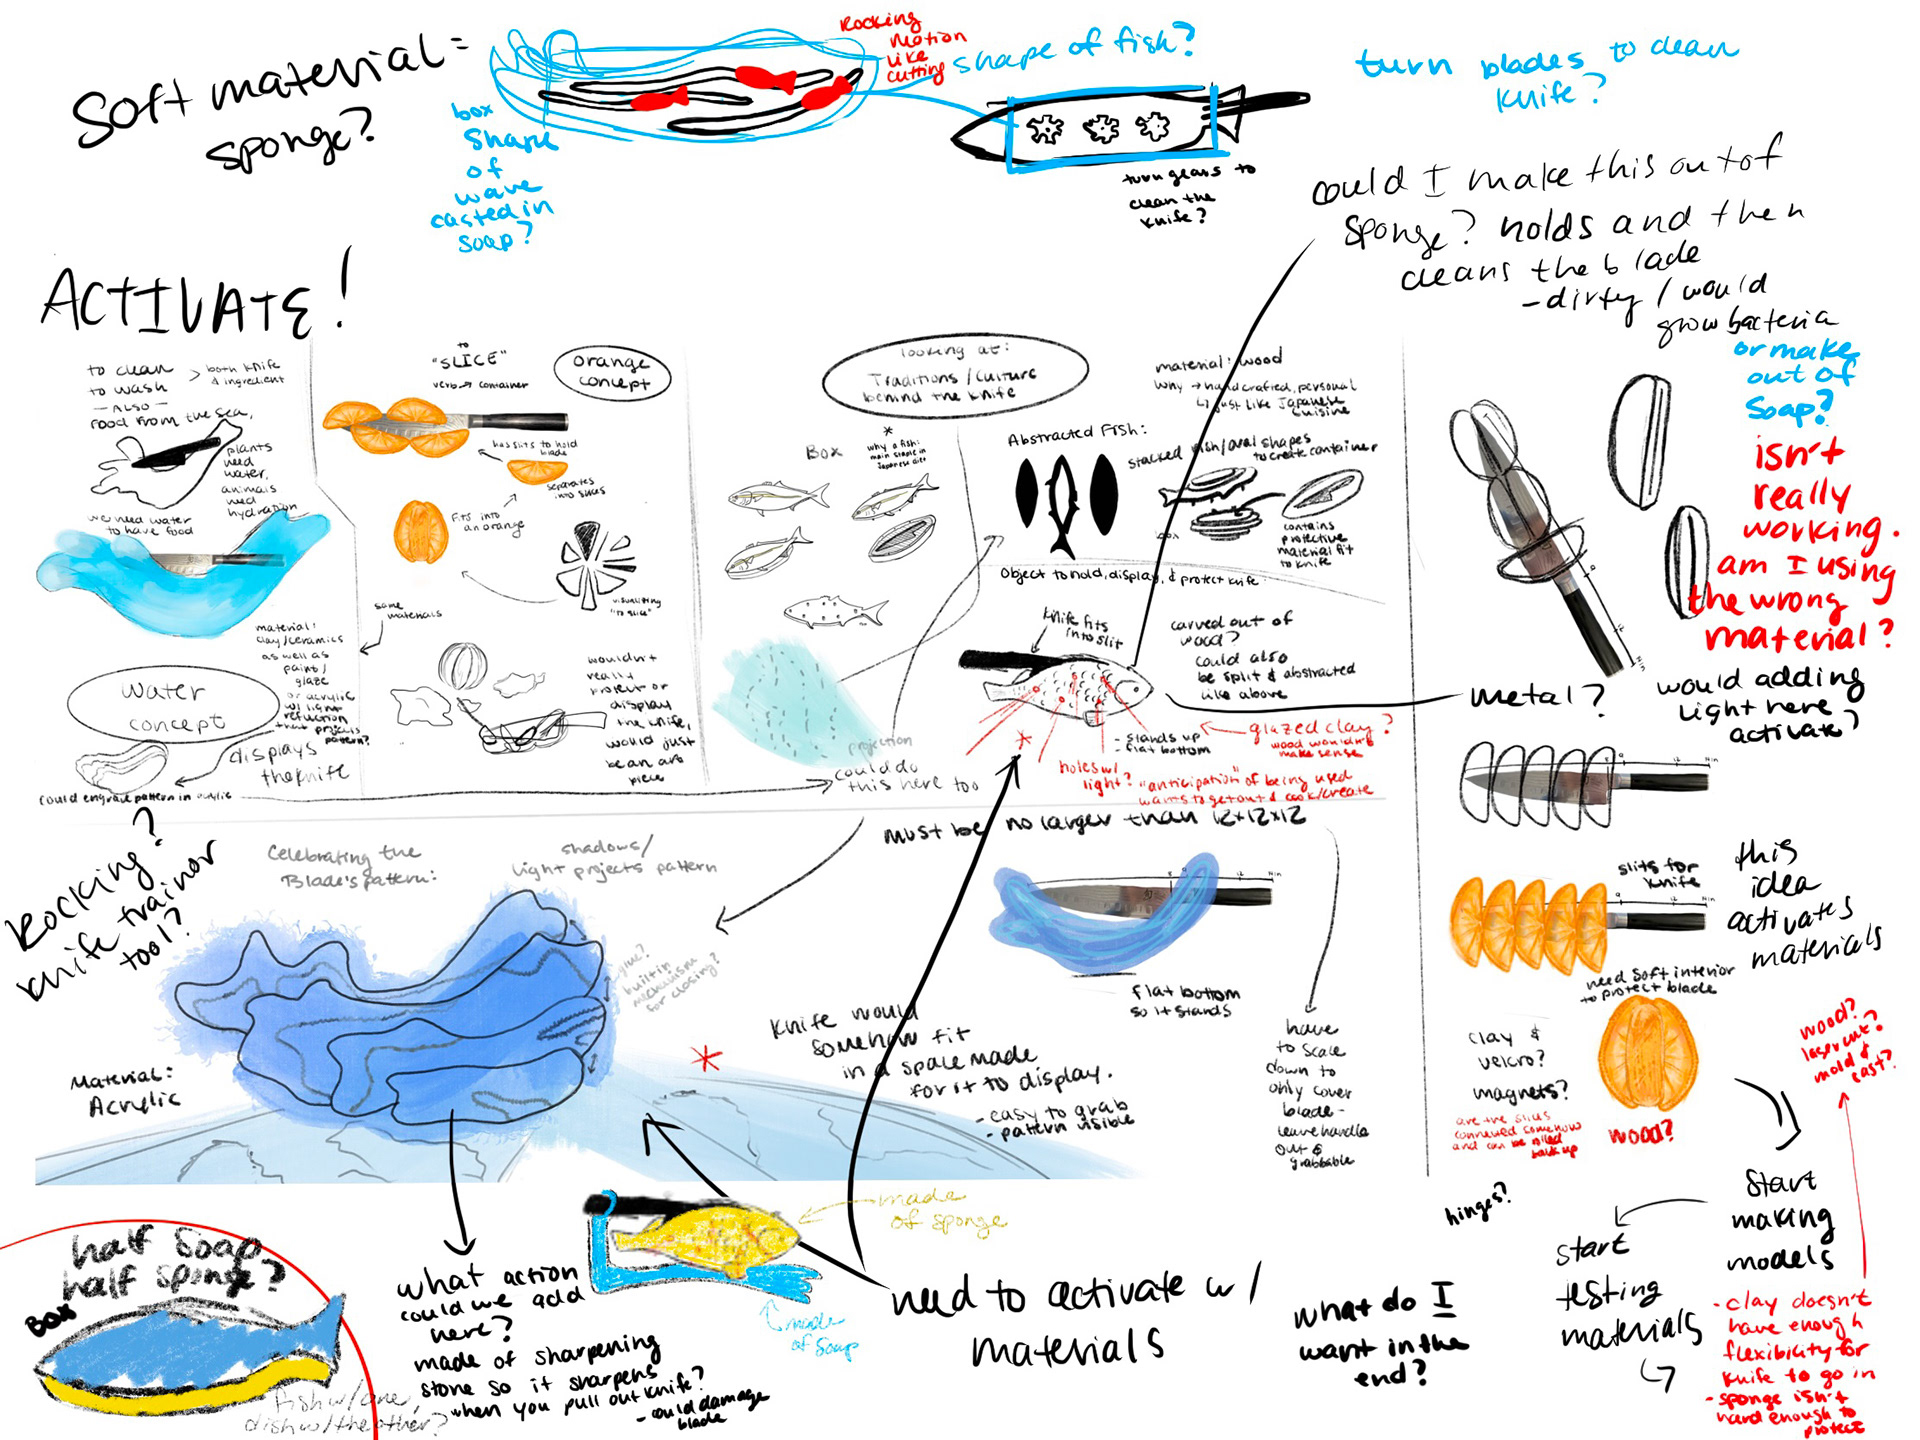 Soft material =
sponge?
Rocking
Motion
like
cutting
shape of fish?
box
shape
of
wave
casted in
soap?
turn gears to
clean the
knife?
turn blades to clean
knife?
could I make this out of
sponge? holds and then
cleans the blade
- dirty / would
grow bacteria
or make
out of
soap?
isn't
really
working.
am I using
the wrong
material?
would adding
light here
activate?
metal?
ACTIVATE!
to clean
to wash
> both knife
& ingredient
- ALSO -
food from the sea,
plants
need
water,
animals
need
hydration
we need water
to have food
material:
clay/ceramics
as well as
paint/
glaze
or acrylic
w/ light
refraction
that projects
pattern?
water
concept
displays
the knife
could engrave pattern in acrylic
to
"SLICE"
verb → container
orange
concept
has slits to hold
blade
separates
into slices
fits into
an orange
visualizing
"to slice"
same
materials
wouldn't
really
protect or
display
the knife,
would just
be an art
piece
looking at:
Traditions/culture
behind the knife
material: wood
why → handcrafted, personal
↳ just like Japanese
cuisine
BOX
*
why a fish:
main staple in
Japanese diet
Abstracted Fish:
stacked fish/oval shapes
to create container
contains
protective
material fit
to knife
Object to hold, display, & protect knife:
knife fits
into slit
carved out of
wood?
could also
be split & abstracted
like above
- stands up
- flat bottom
glazed clay?
wood wouldn't
make sense
*
holes w/
light?
"anticipation" of being used
wants to get out & cook/create
projection
could do
this here too
must be no larger than 12x12x12
Rocking?
knife trainor
tool?
Celebrating the
Blade's pattern:
shadows/
light projects pattern
glue?
built in
mechanism
for closing?
Material:
Acrylic
*
knife would
somehow fit
in a space made
for it to display.
- easy to grab
- pattern visible
flat bottom
so it stands
have
to scale
down to
only cover
blade -
leave handle
out &
grabbable
slits for
knife
this
idea
activates
materials
need soft interior
to protect blade
clay &
velcro?
magnets?
are the slices
connected somehow
and can be rolled
back up
wood?
wood?
laser cut?
mold &
cast?
hinges?
start
making
models
start
testing
materials
- clay doesn't
have enough
flexibility for
knife to go in
- sponge isn't
hard enough to
protect
half soap
half sponge?
BOX
fish w/ one,
dish w/ the other?
what action
could we add
here?
made of sharpening
stone so it sharpens
when you pull out knife?
- could damage
blade
made
of sponge
made
of soap
need to activate w/
materials
what do I
want in the
end?